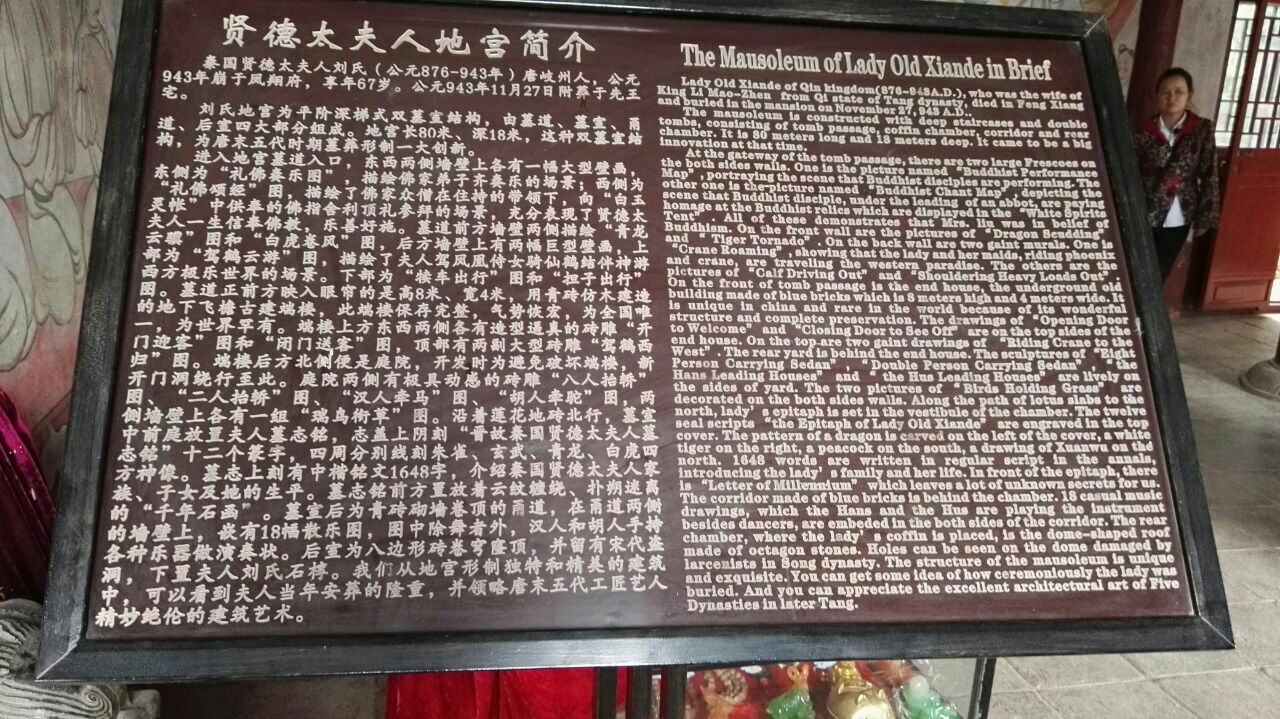 贤德太夫人地宫简介
秦国贤德太夫人刘氏（公元876-943年）唐岐州人，公元
943年崩于凤翔府，享年67岁。公元943年11月27日附葬于先王
宅。
刘氏地宫为平阶深梯式双墓室结构，由墓道、墓室、甬
道、后室四大部分组成。地宫长80米、深18米，这种双墓室结
构，为唐末五代时期墓葬形制一大创新。
进入地宫墓道入口，东西两侧墙壁上各有一幅大型壁画，
东侧为“礼佛奏乐图”，描绘佛家弟子齐奏乐的场景；西侧为
“礼佛颂经”图，描绘了佛家众僧在住持的带领下，向“白玉
灵帐”中供奉的佛指舍利顶礼参拜的场景，充分表现了贤德太
夫人一生信奉佛教、乐善好施。墓道前方墙壁两侧描绘“青龙
云骧”图和“白虎卷风”图，后方墙壁上有两幅巨型壁画，上
部为“驾鹤云游”图，描绘了夫人驾凤凰侍女骑仙鹤结伴神游
西方极乐世界的场景；下部为“犊车出行”图和“担子出行”
图。墓道正前方映入眼帘的是高8米、宽4米，用青砖仿木建造
的地下飞檐古建端楼，此端楼保存完整，气势恢宏，为全国唯
一，为世界罕有。端楼上方东西两侧各有造型逼真的砖雕“开
门迎客”图和“闭门送客”图，顶部有两副大型砖雕“驾鹤西
归”图。端楼后方北侧便是庭院，开发时为避免破坏端楼，新
开门洞绕行至此。庭院两侧有极具动感的砖雕“八人抬轿”
图、“二人抬轿”图、“汉人牵马”图、“胡人牵驼”图，两
侧墙壁上各有一组“瑞鸟衔草”图。沿着莲花地砖北行，墓室
中前庭放置夫人墓志铭，志盖上阴刻“晋故秦国贤德太夫人墓
志铭”十二个篆字，四周分别线刻朱雀、玄武、青龙、白虎四
方神像。墓志上刻有中楷铭文1648字，介绍秦国贤德太夫人家
族、子女及她的生平。墓志铭前方置放着云纹缠绕、扑朔迷离
的“千年石画”。墓室后为青砖砌墙卷顶的甬道，在甬道两侧
的墙壁上，嵌有18幅散乐图，图中除舞者外，汉人和胡人手持
各种乐器做演奏状。后室为八边形砖卷穹隆顶，并留有宋代盗
洞，下置夫人刘氏石椁。我们从地宫形制独特和精美的建筑
中，可以看到夫人当年安葬的隆重，并领略唐末五代工匠艺人
精妙绝伦的建筑艺术。
The Mausoleum of Lady Old Xiande in Brief
Lady Old Xiande of Qin kingdom(876-943A.D.), who was the wife of
King Li Mao-Zhen from Qi state of Tang dynasty, died in Feng Xiang
and buried in the mansion on November 27, 943 A.D..
The mausoleum is constructed with deep staircases and double
tombs, consisting of tomb passage, coffin chamber, corridor and rear
chamber. It is 80 meters long and 18 meters deep. It came to be a big
innovation at that time.
At the gateway of the tomb passage, there are two large Frescoes on
the both sides walls. One is the picture named “Buddhist Performance
Map”, portraying the scene that Buddhist disciples are performing. The
other one is the picture named “Buddhist Chant Map”, depicting the
scene that Buddhist disciple, under the leading of an abbot, are paying
homage at the Buddhist relics which are displayed in the “White Spirits
Tent”. All of these demonstrates that Mrs. liu was in belief of
Buddhism. On the front wall are the pictures of “Dragon Scudding”
and “Tiger Tornado”. On the back wall are two gaint murals. One is
“Crane Roaming”, showing that the lady and her maids, riding phoenix
and crane, are traveling the western paradise. The others are the
pictures of “Calf Driving Out” and “Shouldering Heavy Loads Out”.
On the front of tomb passage is the end house, the underground old
building made of blue bricks which is 8 meters high and 4 meters wide. It
is unique in china and rare in the world because of its wonderful
structure and complete preservation. The drawings of “Opening Door
to Welcome” and “Closing Door to See Off” are on the top sides of the
end house. On the top are two gaint drawings of “Riding Crane to the
West”. The rear yard is behind the end house. The sculptures of “Eight
Person Carrying Sedan”, “Double Person Carrying Sedan”, “the
Hans Leading Houses” and “the Hus Leading Houses” are lively on
the sides of yard. The two pictures of “Birds Holding Grass” are
decorated on the both sides walls. Along the path of lotus slabs to the
north, lady’s epitaph is set in the vestibule of the chamber. The twelve
seal scripts “the Epitaph of Lady Old Xiande” are engraved in the top
cover. The pattern of a dragon is carved on the left of the cover, a white
tiger on the right, a peacock on the south, a drawing of Xuanwu on the
north. 1648 words are written in regular script in the annals,
introducing the lady’s family and her life. In front of the epitaph, there
is “Letter of Millennium” which leaves a lot of unknown secrets for us.
The corridor made of blue bricks is behind the chamber. 18 casual music
drawings, which the Hans and the Hus are playing the instrument
besides dancers, are embeded in the both sides of the corridor. The rear
chamber, where the lady’s coffin is placed, is the dome-shaped roof
made of octagon stones. Holes can be seen on the dome damaged by
larcenists in Song dynasty. The structure of the mausoleum is unique
and exquisite. You can get some idea of how ceremoniously the lady was
buried. And you can appreciate the excellent architectural art of Five
Dynasties in later Tang.